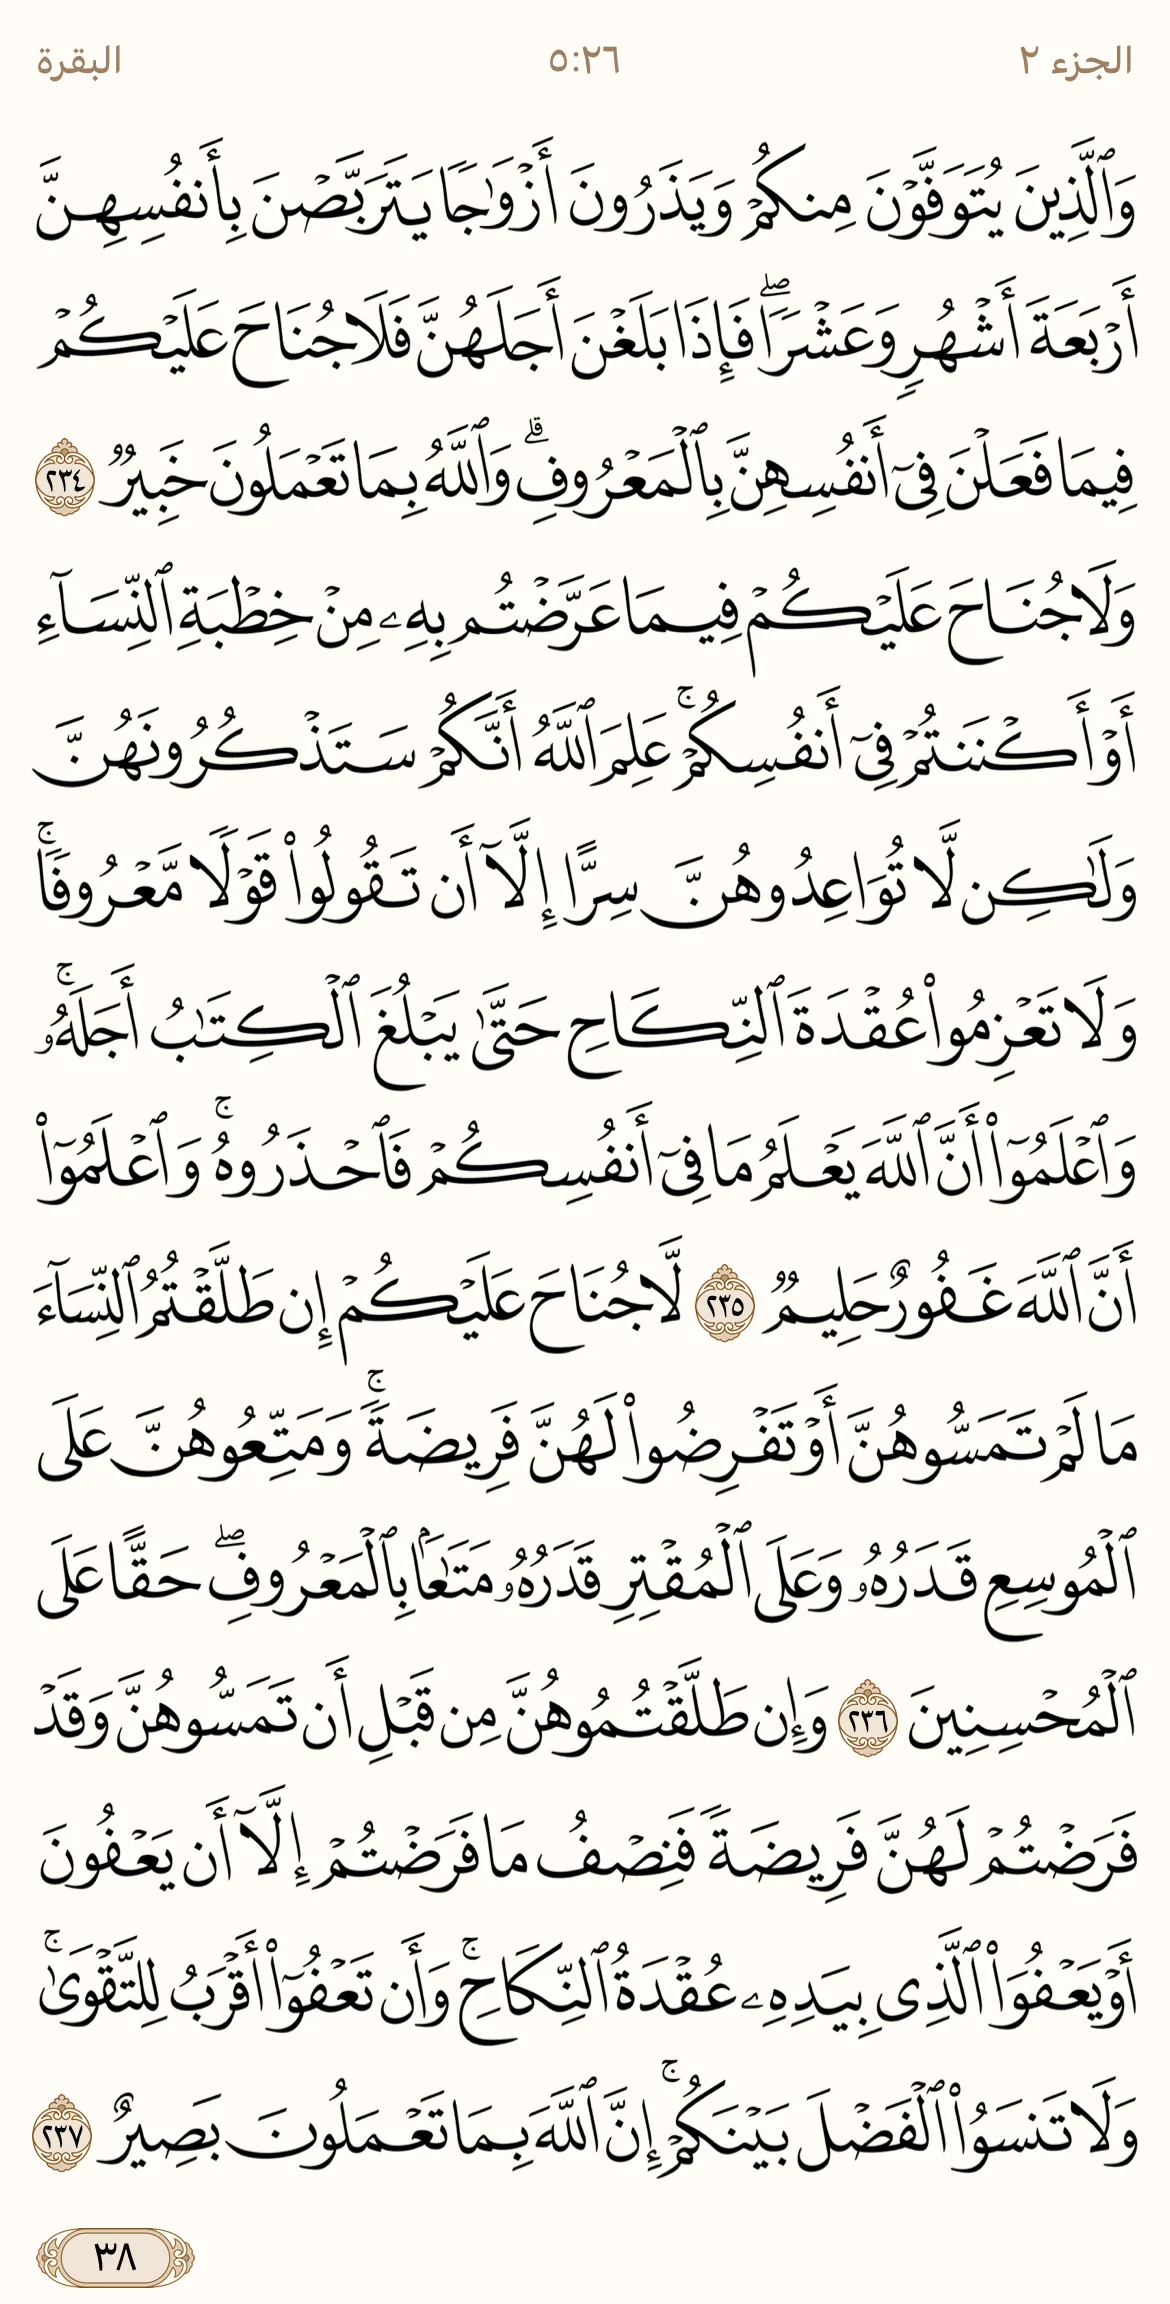 الجزء ٢
٥:٢٦
البقرة
وَٱلَّذِينَ يُتَوَفَّوْنَ مِنكُمْ وَيَذَرُونَ أَزْوَٰجًا يَتَرَبَّصْنَ بِأَنفُسِهِنَّ
أَرْبَعَةَ أَشْهُرٍ وَعَشْرًا ۖ فَإِذَا بَلَغْنَ أَجَلَهُنَّ فَلَا جُنَاحَ عَلَيْكُمْ
فِيمَا فَعَلْنَ فِىٓ أَنفُسِهِنَّ بِٱلْمَعْرُوفِ ۗ وَٱللَّهُ بِمَا تَعْمَلُونَ خَبِيرٌ ٢٣٤
وَلَا جُنَاحَ عَلَيْكُمْ فِيمَا عَرَّضْتُم بِهِۦ مِنْ خِطْبَةِ ٱلنِّسَآءِ
أَوْ أَكْنَنتُمْ فِىٓ أَنفُسِكُمْ ۚ عَلِمَ ٱللَّهُ أَنَّكُمْ سَتَذْكُرُونَهُنَّ
وَلَٰكِن لَّا تُوَاعِدُوهُنَّ سِرًّا إِلَّآ أَن تَقُولُوا۟ قَوْلًا مَّعْرُوفًا ۚ
وَلَا تَعْزِمُوا۟ عُقْدَةَ ٱلنِّكَاحِ حَتَّىٰ يَبْلُغَ ٱلْكِتَٰبُ أَجَلَهُۥ ۚ
وَٱعْلَمُوٓا۟ أَنَّ ٱللَّهَ يَعْلَمُ مَا فِىٓ أَنفُسِكُمْ فَٱحْذَرُوهُ ۚ وَٱعْلَمُوٓا۟
أَنَّ ٱللَّهَ غَفُورٌ حَلِيمٌ ٢٣٥ لَّا جُنَاحَ عَلَيْكُمْ إِن طَلَّقْتُمُ ٱلنِّسَآءَ
مَا لَمْ تَمَسُّوهُنَّ أَوْ تَفْرِضُوا۟ لَهُنَّ فَرِيضَةً ۚ وَمَتِّعُوهُنَّ عَلَى
ٱلْمُوسِعِ قَدَرُهُۥ وَعَلَى ٱلْمُقْتِرِ قَدَرُهُۥ مَتَٰعًۢا بِٱلْمَعْرُوفِ ۖ حَقًّا عَلَى
ٱلْمُحْسِنِينَ ٢٣٦ وَإِن طَلَّقْتُمُوهُنَّ مِن قَبْلِ أَن تَمَسُّوهُنَّ وَقَدْ
فَرَضْتُمْ لَهُنَّ فَرِيضَةً فَنِصْفُ مَا فَرَضْتُمْ إِلَّآ أَن يَعْفُونَ
أَوْ يَعْفُوَا۟ ٱلَّذِى بِيَدِهِۦ عُقْدَةُ ٱلنِّكَاحِ ۚ وَأَن تَعْفُوٓا۟ أَقْرَبُ لِلتَّقْوَىٰ ۚ
وَلَا تَنسَوُا۟ ٱلْفَضْلَ بَيْنَكُمْ ۚ إِنَّ ٱللَّهَ بِمَا تَعْمَلُونَ بَصِيرٌ ٢٣٧
٣٨